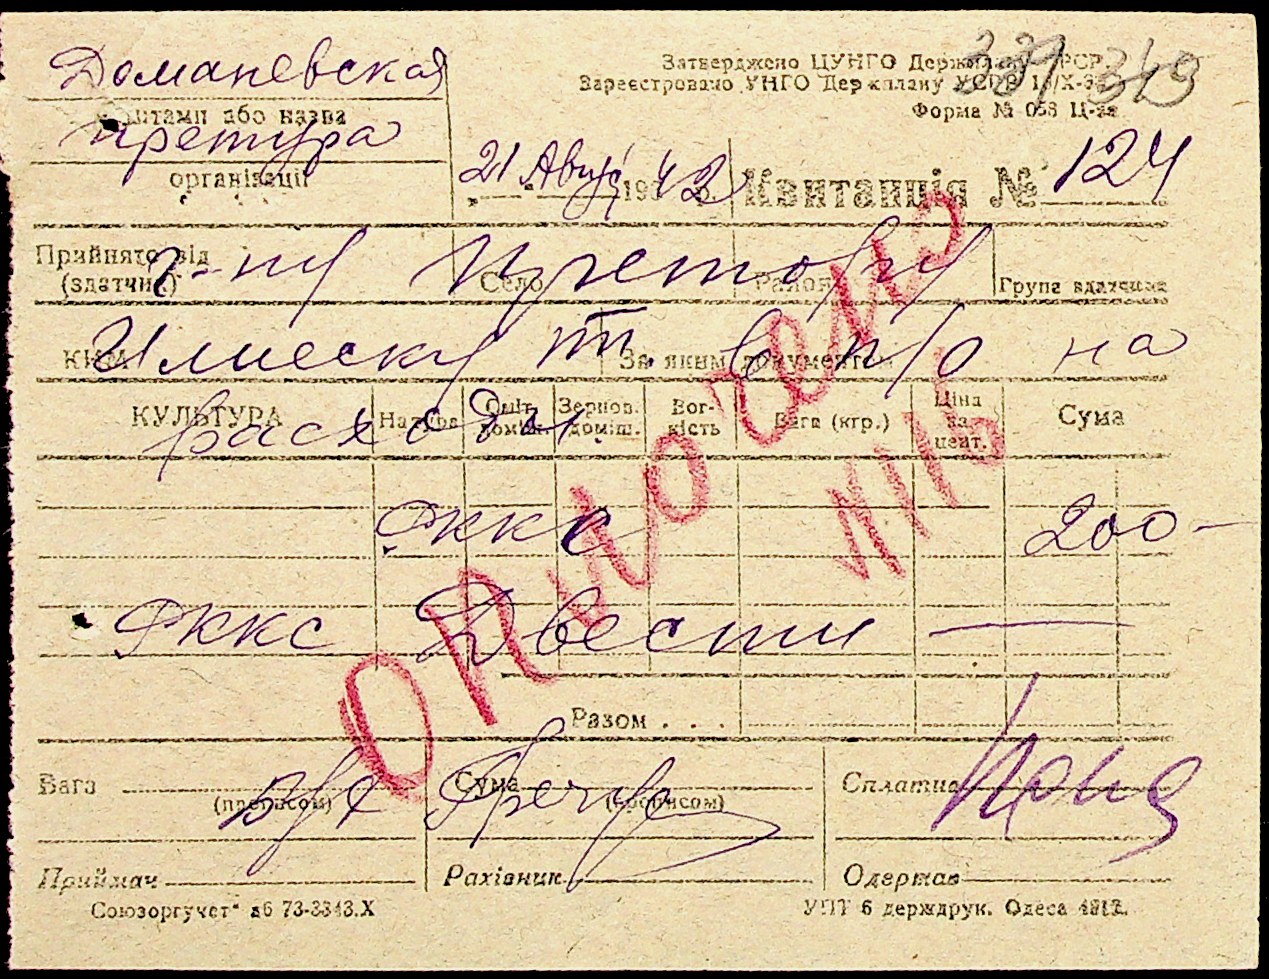 Доманевская
Штамп або назва
претура
організації
Затверджено ЦУНГО Держплану УРСР
Зареєстровано УНГО Держплану УСРР
Форма № 058 Ц-за
349
21 Авг. 1942 р.
Квитанція № 124
Прийнято від (здатчик) г-ну Село Претору Район Група здатчика
КИМ Илиеску За яким документом в п/о на
КУЛЬТУРА Натура Сміт. доміш. Зернов. доміш. Вогкість Вага (кгр.) Ціна за цент. Сума
расходы
РККС 200-
РККС Двести —
Оплочено
Разом . . . .
Вага (прописом) Сума (прописом) Сплатив
Приймач Рахівник Одержав
Союзоргучет" д6 73-3343.X УПТ 6 держдрук. Одеса